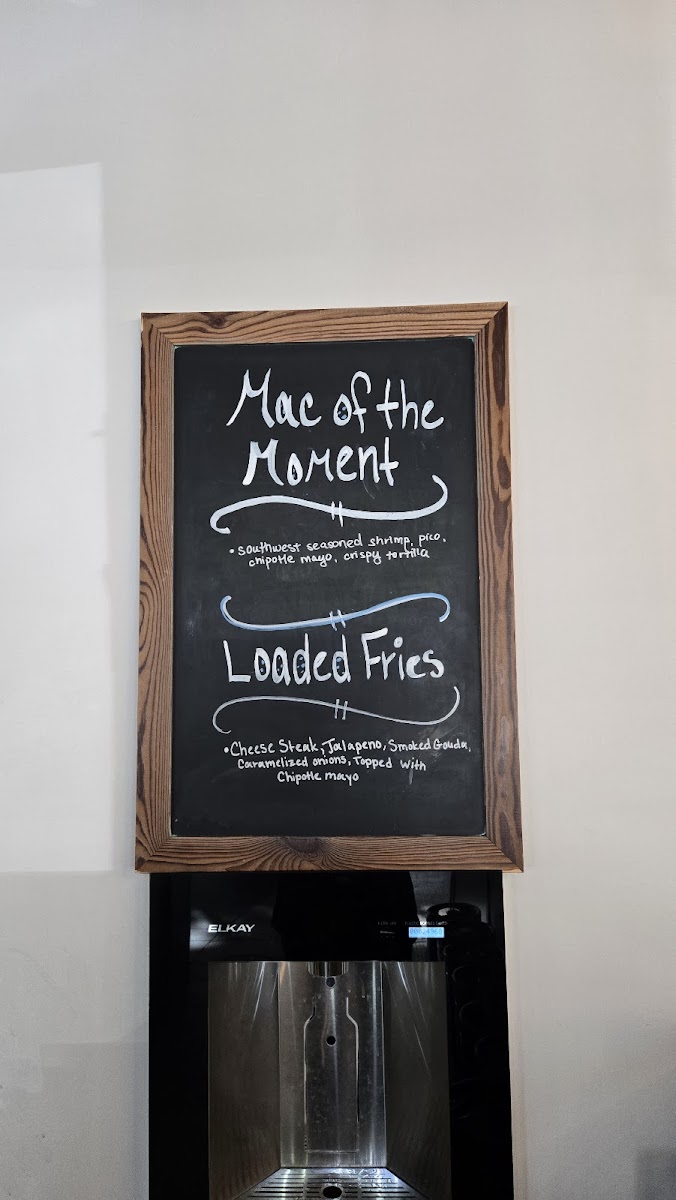 Mac of the
Moment
• southwest seasoned shrimp, pico,
chipotle mayo, crispy tortilla
Loaded Fries
• Cheese Steak, Jalapeno, Smoked Gouda,
Caramelized onions, Topped With
Chipotle mayo
ELKAY